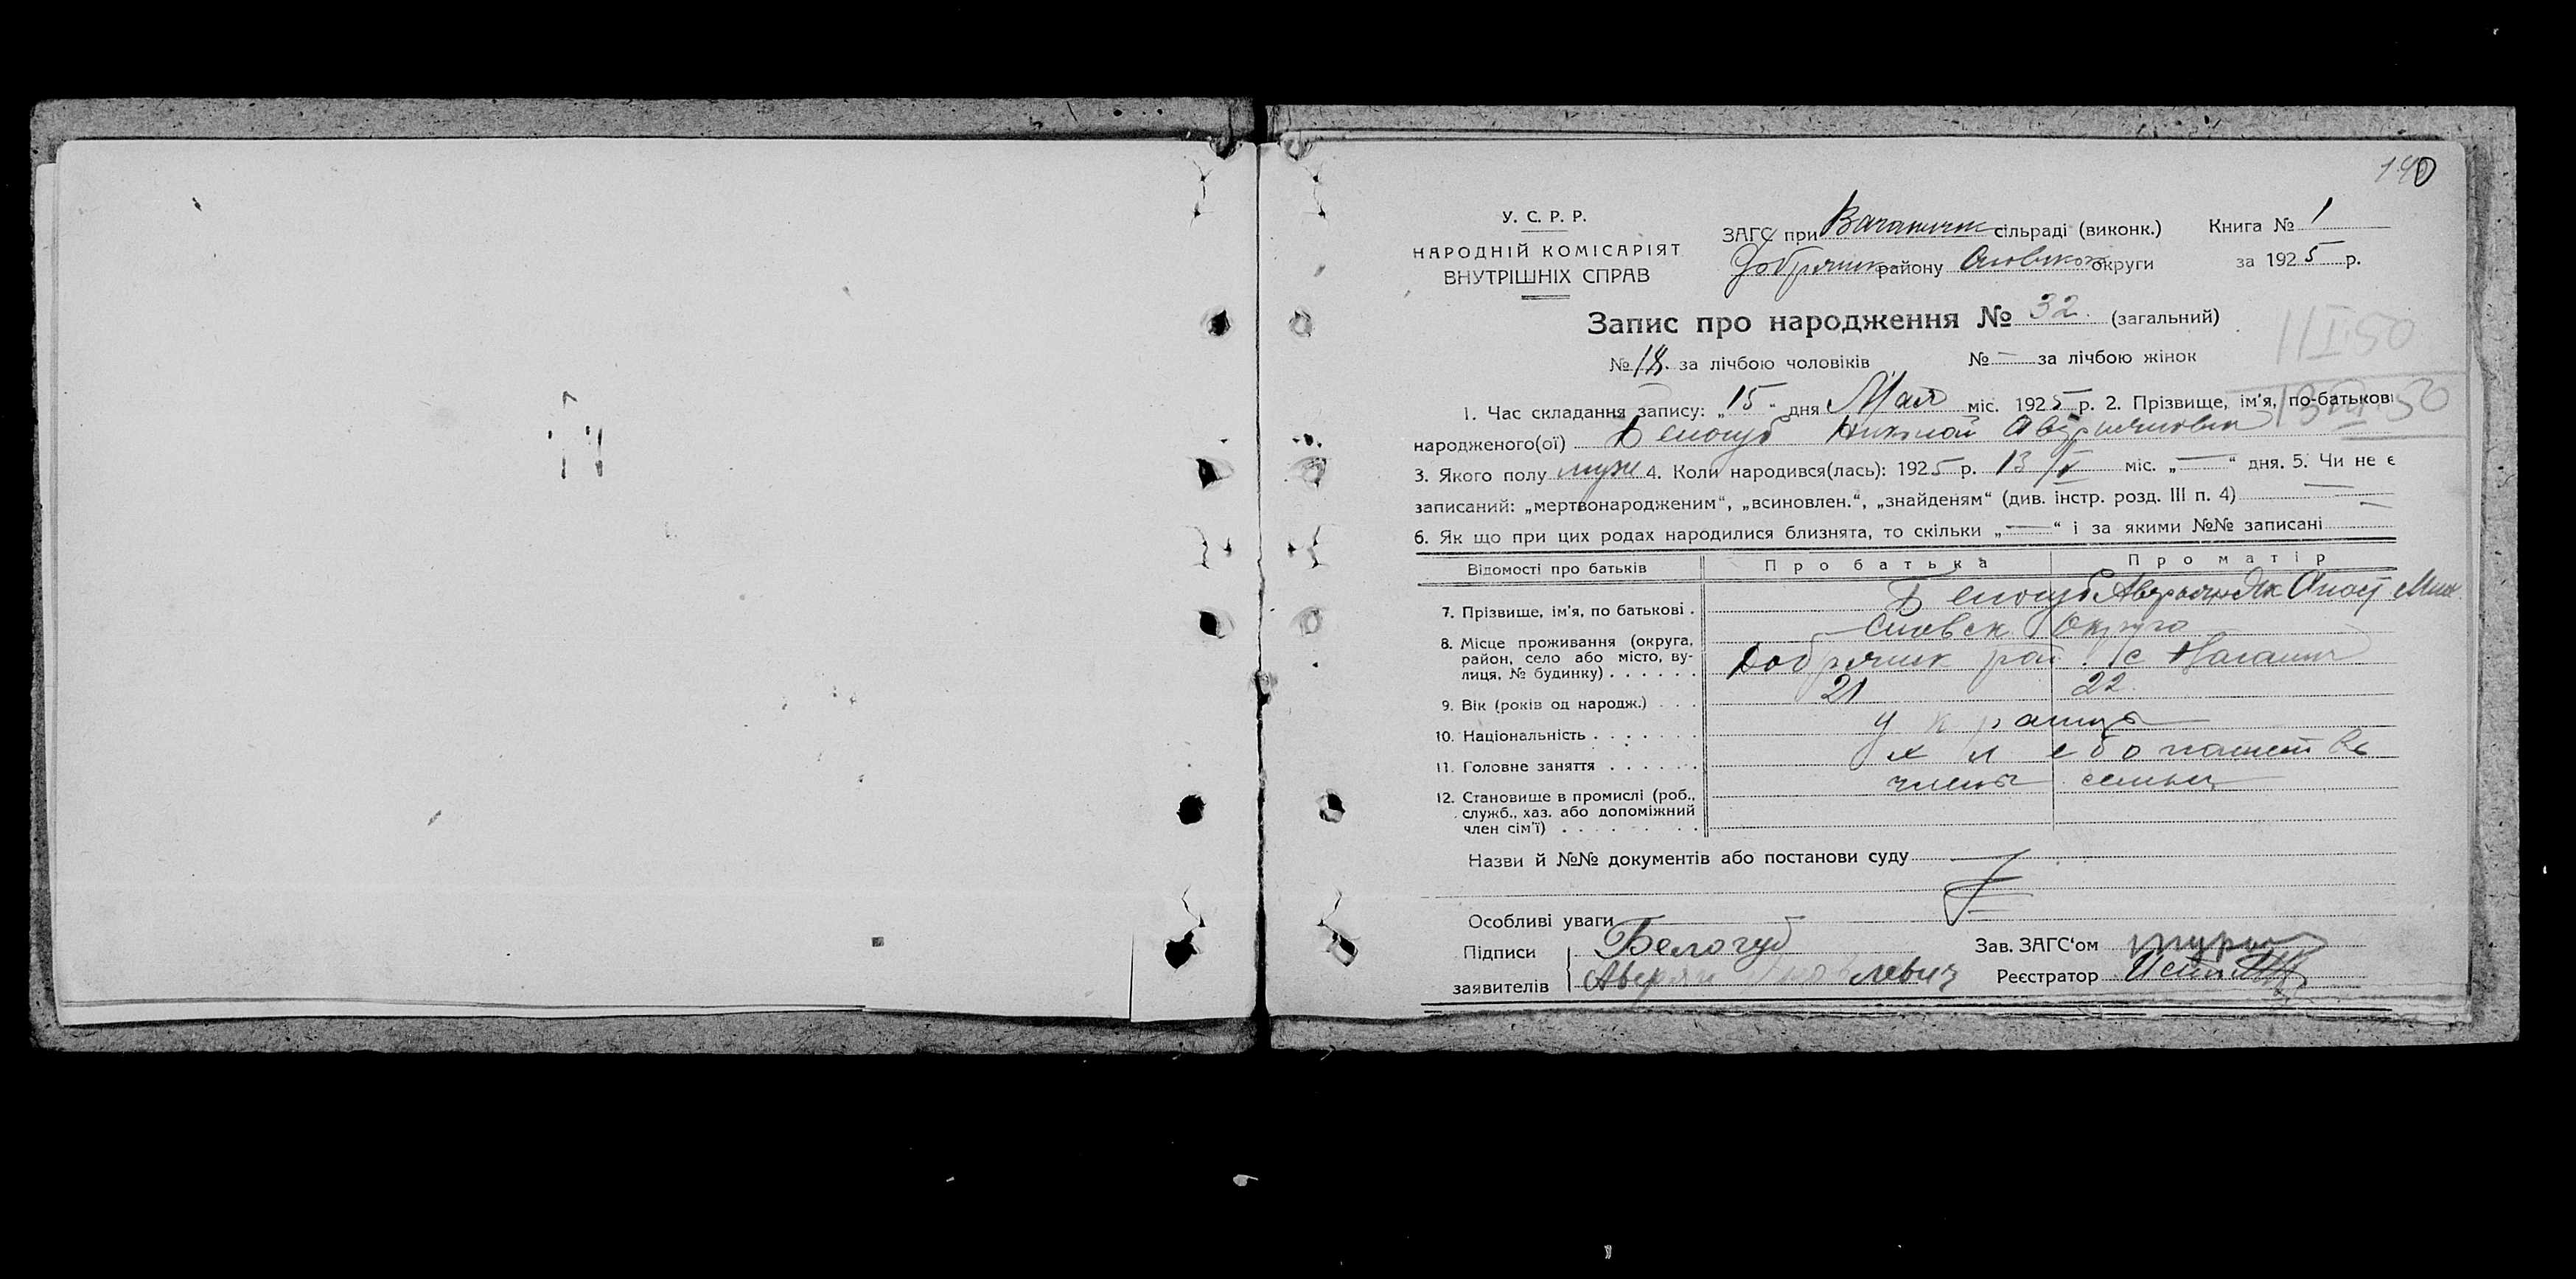 140
У. С. Р. Р.
НАРОДНІЙ КОМІСАРІЯТ
ВНУТРІШНІХ СПРАВ
ЗАГС при сільраді (виконк.) Книга № 1
району округи за 1925 р.
Запис про народження № 32. (загальний)
11 I 50
№ 18. за лічбою чоловіків № — за лічбою жінок
1. Час складання запису: „15" дня Мая міс. 1925 р. 2. Прізвище, ім'я, по-батькові
народженого(ої) Белогуб Николай
3. Якого полу муж 4. Коли народився(лась): 1925 р. 13/V міс. „—" дня. 5. Чи не є
записаний: „мертвонародженим", „всиновлен.", „знайденям" (див. інстр. розд. III п. 4) —
6. Як що при цих родах народилися близнята, то скільки „—" і за якими №№ записані —
Відомості про батьків Про батька Про матір
7. Прізвище, ім'я, по батькові . Белогуб Аверьян Як Анаст Мих
8. Місце проживання (округа, район, село або місто, вулиця, № будинку) . . . . . . Сновск Округа
Добрянск рай. с
9. Вік (років од народж.) . . . 21 22
10. Національність . . . . . . . украинцы
11. Головне заняття . . . . . . хлебопашеств
12. Становище в промислі (роб., служб., хаз. або допоміжний член сім'ї) . . . . . . . члены семьи
Назви й №№ документів або постанови суду —
Особливі уваги
Підписи Белогуб Зав. ЗАГС'ом
заявителів Аверян Яковлевич Реєстратор